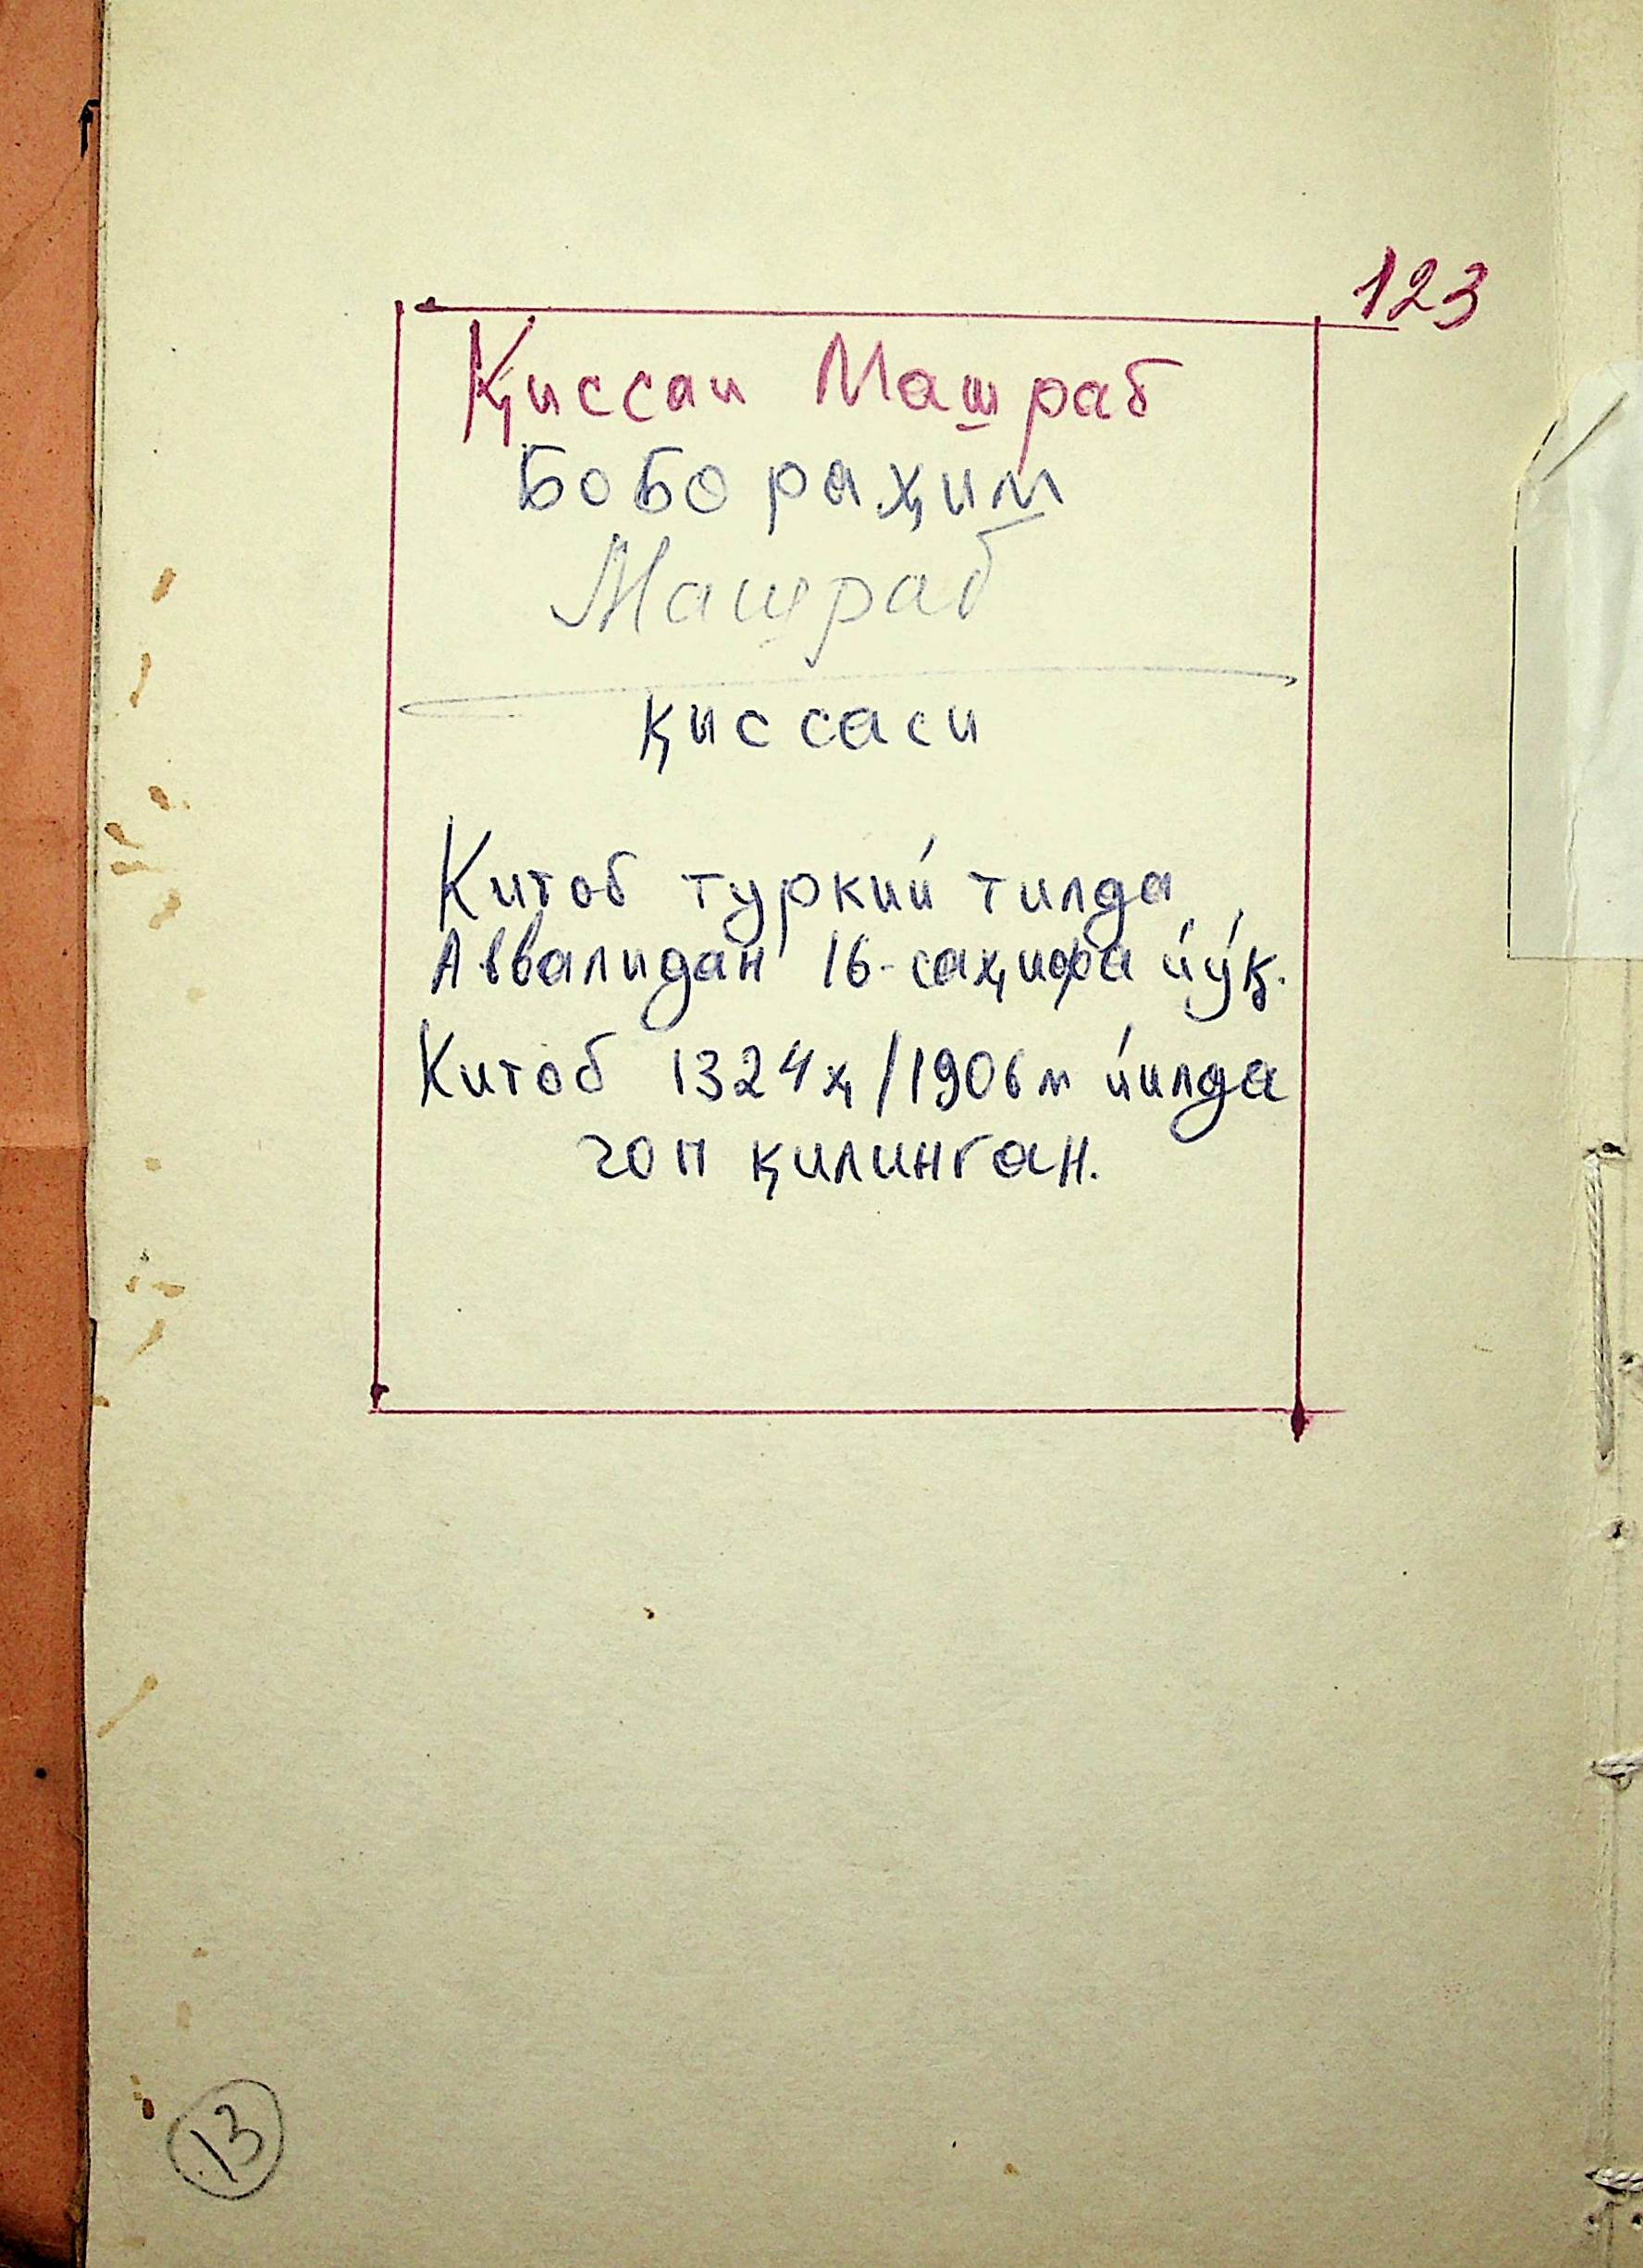 123
Қиссаи Машраб
Бобораҳим
Машраб
қиссаси
Китоб туркий тилда
Аввалидан 16-саҳифа йўқ.
Китоб 1324ҳ/1906м йилда
чоп қилинган.
13